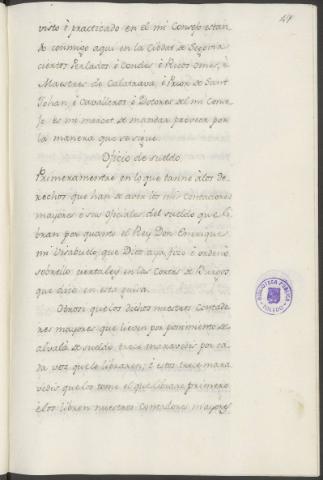 47
visto è practicado en el mi Consejo estan-
do conmigo aqui en la Cibdat de Segovia
ciertos Perlados è Condes è Ricos omes, è
Maestres de Calatrava, è Prior de Sant
Johan, è Cavalleros è Dotores del mi Conse-
jo es mi mercet de mandar proveer por
la manera que se sigue.
Oficio de sueldo
Primeramente en lo que tanne à los de-
rechos que han de aver los mis Contadores
mayores è sus oficiales del sueldo que li-
bran por quanto el Rey Don Enrique
mi Visabuelo, que Dios aya, fizo è ordenò
sobre ello cierta ley en las Cortes de Burgos
que dice en esta guisa.
Otrosi que los dichos nuestros Contado-
res mayores que lieven por ponimiento de
alvalà de sueldo trece maravedis por ca-
da vez que le libraren; è estos trece mara-
vedis que los tome el que librare primero
è los libren nuestros Contadores mayores
BIBLIOTECA PUBLICA
TOLEDO